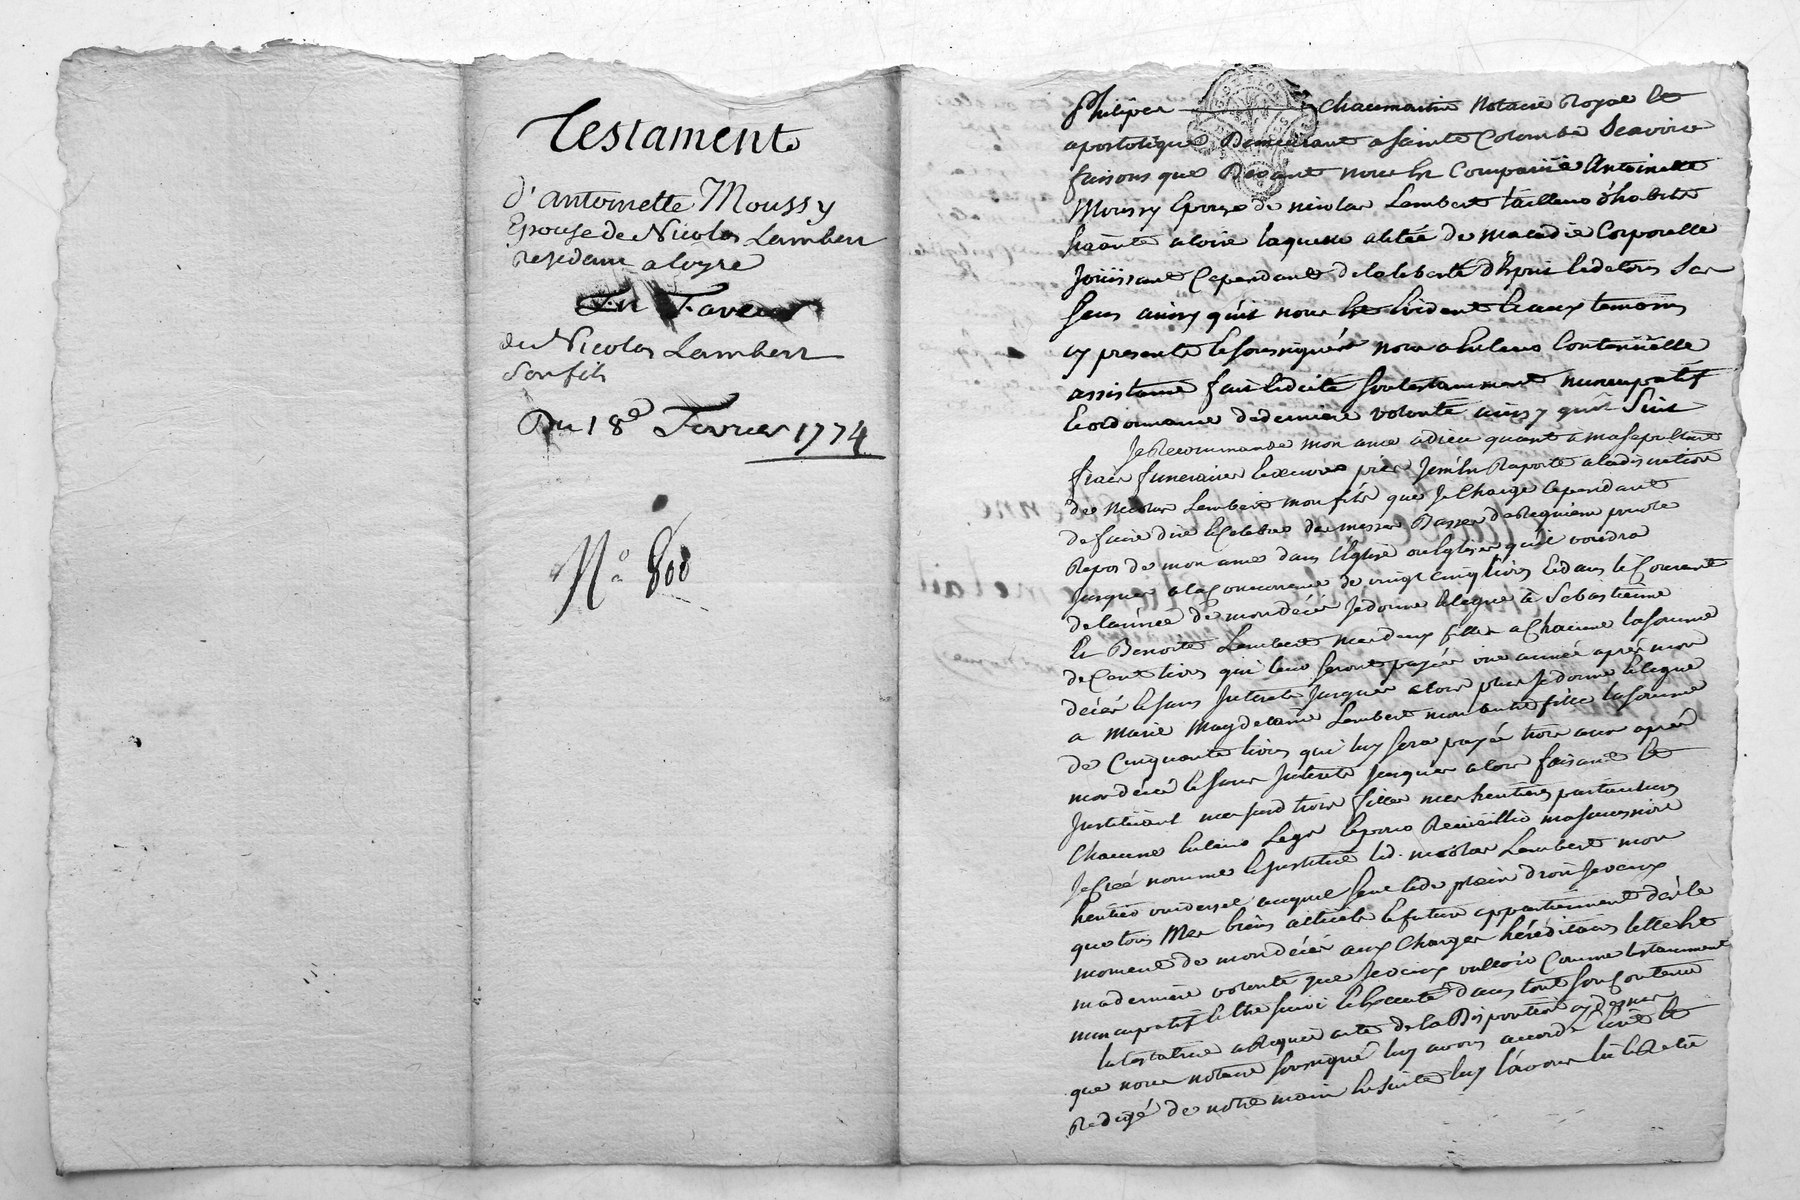 Testament
d'antoinette Moussy
Epouse de Nicolas Lambert
residant a loyre
En Faveur
de Nicolas Lambert
son fils
Du 18e Fevrier 1774
N° 800
Philipes Chaumartin Notaire Royal et
apostolique Demeurant a sainte Colombe scavoir
faisons que Devant nous est Comparüe Antoinette
Moussy Epouse de nicolas Lambert tailleur d'habits
a loire laquelle alitée de maladie Corporelle
Joüissant Cependant de la liberté d'Esprit et de tous ses
sens ainsy qu'il nous est Evident et aux temoins
cy presents et soussignés nous a en leur Continüelle
assistance fait et dicté son testamment nuncupatif
et ordonnance de derniere volonté ainsy qu'il suit
Je Recommande mon ame a dieu quant a ma sepulture
frais funeraires et œuvres pies Jem'en Raporte a la discretion
de Nicolas Lambert mon fils que Je Charge Cependant
de faire dire et Celebrer des messes Basses de Requiem pour le
Repos de mon ame dans l'Eglise ou Eglises qu'il voudra
Jusques a la Concurrance de vingt cinq livres et dans le Courant
de l'année de mon décés Je donne et legue à Sebastienne
et Benoite Lambert mes deux filles a Chacune la somme
de Cent livres qui leur seront payés une année aprés mon
décés et sans Interets Jusques alors plus Je donne et legue
a Marie Magdelaine Lambert mon autre fille la somme
de Cinquante livres qui luy sera payée trois ans aprés
mon décés et sans Interets Jusques alors faisant et
Instituant mes sud trois filles mes heritieres particulieres
Chacune en leurs Legs et pour Recueillir ma succession
Je Créé nomme et Institue led. nicolas Lambert mon
heritier universel auquel seul et de plein droit Je veux
que tous Mes biens actuels et futurs appartiennent dés le
moment de mon décés aux Charges héréditaires telle est
ma derniere volonté que Je veux valloir Comme testamment
nuncupatif et etre suivi et Executé dans tout son Contenu
la testatrice a Requis acte de la Disposition cy Dessus
que nous notaire soussigné luy avons accordé Ecrit et
Redigé de notre main Ensuite luy l'avons lû et Relu